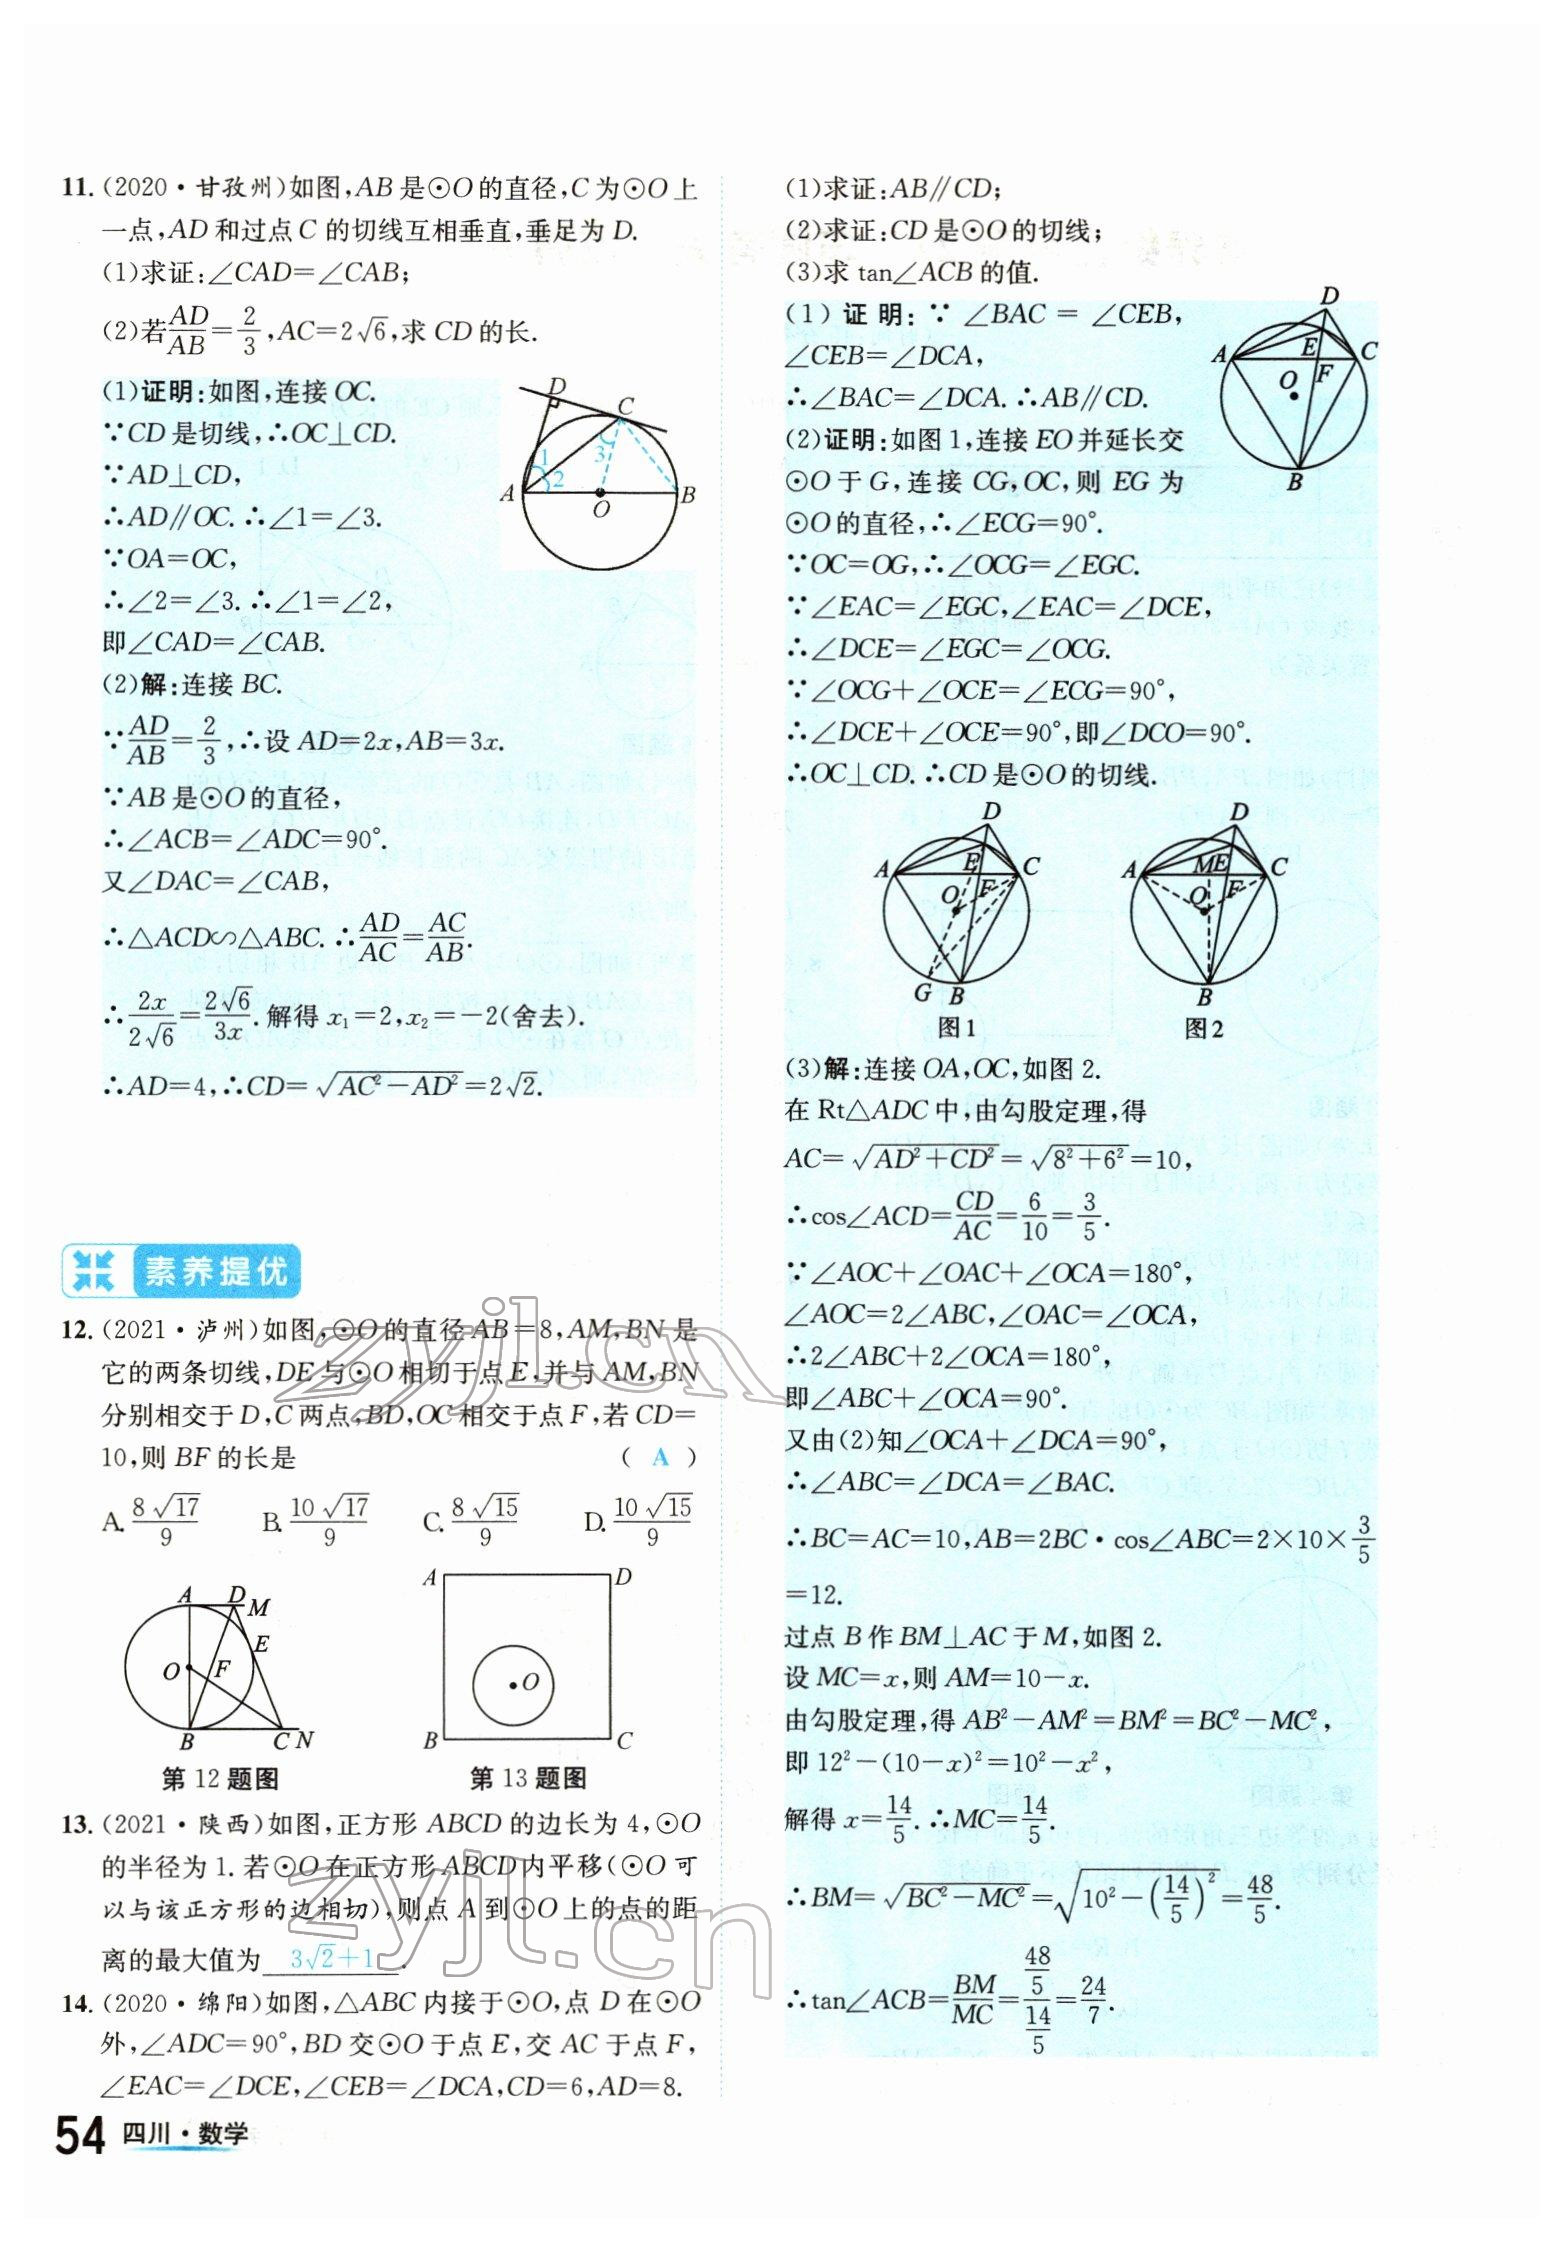 11.(2020·甘孜州)如图,AB是⊙O的直径,C为⊙O上
一点,AD和过点C的切线互相垂直,垂足为D.
(1)求证:∠CAD=∠CAB;
(2)若AD/AB=2/3,AC=2√6,求CD的长.
(1)证明:如图,连接OC.
∵CD是切线,∴OC⊥CD.
∵AD⊥CD,
∴AD∥OC.∴∠1=∠3.
∵OA=OC,
∴∠2=∠3.∴∠1=∠2,
即∠CAD=∠CAB.
D
C
1
2
3
A
O
B
(2)解:连接BC.
∵AD/AB=2/3,∴设AD=2x,AB=3x.
∵AB是⊙O的直径,
∴∠ACB=∠ADC=90°.
又∠DAC=∠CAB,
∴△ACD∽△ABC.∴AD/AC=AC/AB.
∴2x/2√6=2√6/3x.解得x₁=2,x₂=-2(舍去).
∴AD=4,∴CD=√(AC²-AD²)=2√2.
素养提优
12.(2021·泸州)如图,⊙O的直径AB=8,AM,BN是
它的两条切线,DE与⊙O相切于点E,并与AM,BN
分别相交于D,C两点,BD,OC相交于点F,若CD=
10,则BF的长是 ( A )
A. 8√17/9 B. 10√17/9 C. 8√15/9 D. 10√15/9
A D M
E
O F
B C N
第12题图
A D
O
B C
第13题图
13.(2021·陕西)如图,正方形ABCD的边长为4,⊙O
的半径为1.若⊙O在正方形ABCD内平移(⊙O可
以与该正方形的边相切),则点A到⊙O上的点的距
离的最大值为 3√2+1 .
14.(2020·绵阳)如图,△ABC内接于⊙O,点D在⊙O
外,∠ADC=90°,BD交⊙O于点E,交AC于点F,
∠EAC=∠DCE,∠CEB=∠DCA,CD=6,AD=8.
54 四川·数学
(1)求证:AB∥CD;
(2)求证:CD是⊙O的切线;
(3)求tan∠ACB的值.
(1)证明:∵∠BAC=∠CEB,
∠CEB=∠DCA,
∴∠BAC=∠DCA.∴AB∥CD.
D
A E C
O F
B
(2)证明:如图1,连接EO并延长交
⊙O于G,连接CG,OC,则EG为
⊙O的直径,∴∠ECG=90°.
∵OC=OG,∴∠OCG=∠EGC.
∵∠EAC=∠EGC,∠EAC=∠DCE,
∴∠DCE=∠EGC=∠OCG.
∵∠OCG+∠OCE=∠ECG=90°,
∴∠DCE+∠OCE=90°,即∠DCO=90°.
∴OC⊥CD.∴CD是⊙O的切线.
D
A E C
O F
G B
图1
D
A M E C
O F
B
图2
(3)解:连接OA,OC,如图2.
在Rt△ADC中,由勾股定理,得
AC=√(AD²+CD²)=√(8²+6²)=10,
∴cos∠ACD=CD/AC=6/10=3/5.
∵∠AOC+∠OAC+∠OCA=180°,
∠AOC=2∠ABC,∠OAC=∠OCA,
∴2∠ABC+2∠OCA=180°,
即∠ABC+∠OCA=90°.
又由(2)知∠OCA+∠DCA=90°,
∴∠ABC=∠DCA=∠BAC.
∴BC=AC=10,AB=2BC·cos∠ABC=2×10×3/5
=12.
过点B作BM⊥AC于M,如图2.
设MC=x,则AM=10-x.
由勾股定理,得AB²-AM²=BM²=BC²-MC²,
即12²-(10-x)²=10²-x²,
解得x=14/5.∴MC=14/5.
∴BM=√(BC²-MC²)=√(10²-(14/5)²)=48/5.
∴tan∠ACB=BM/MC=(48/5)/(14/5)=24/7.
zyjl.cn
zyjl.cn